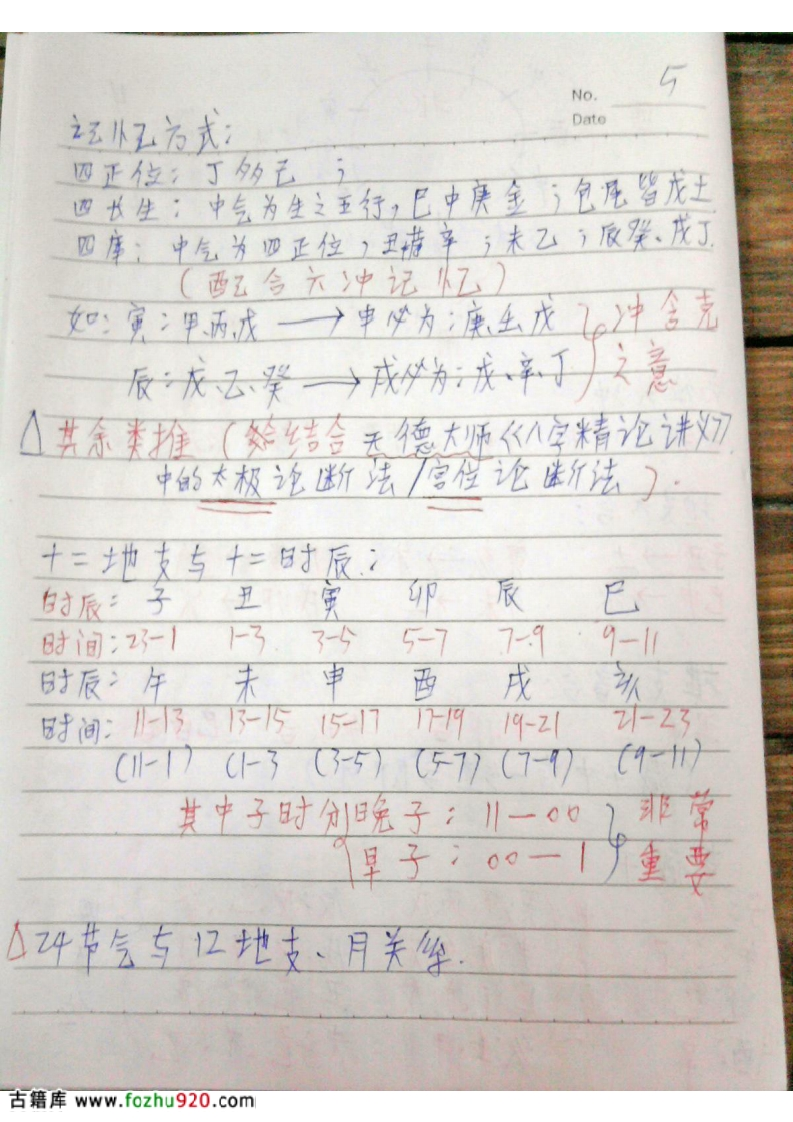 No. 5
Date
记忆方式:
四正位:丁多己;
四长生:中气为生之五行,巳中庚金;包尾皆戊土
四库:中气为四正位,丑藏辛;未乙;辰癸、戌丁.
(配合六冲记忆)
如:寅:甲、丙、戊 → 申必为:庚、壬、戊 } 冲含克
辰:戊、乙、癸 → 戌必为:戊、辛、丁 之意
△其余类推(结合天德大师《八字精论讲义》
中的太极论断法/宫位论断法).
十二地支与十二时辰:
时辰:子 丑 寅 卯 辰 巳
时间:23-1 1-3 3-5 5-7 7-9 9-11
时辰:午 未 申 酉 戌 亥
时间:11-13 13-15 15-17 17-19 19-21 21-23
(11-1) (1-3 (3-5) (5-7) (7-9) (9-11)
其中子时分 晚子:11-00 } 非常
早子:00-1 重要
△24节气与12地支、月关系.
古籍库 www.fozhu920.com